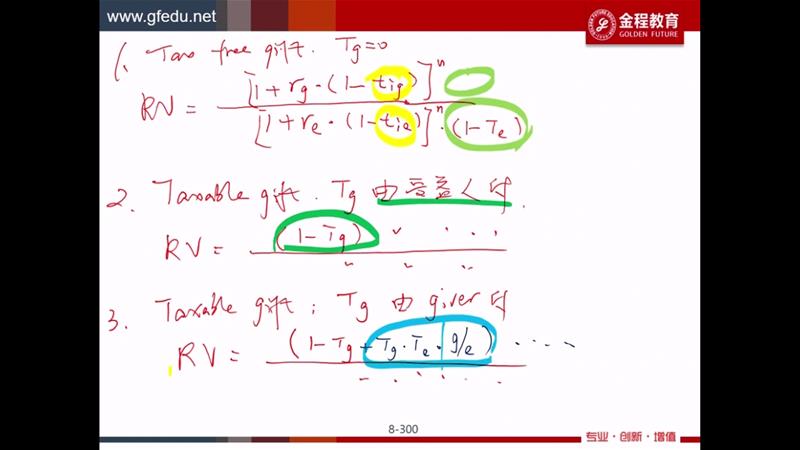 www.gfedu.net
金程教育
GOLDEN FUTURE
1. Tax free gift. Tg=0
RV = [1+rg·(1-tig)]^n / [1+re·(1-tie)]^n·(1-Te)
2. Taxable gift. Tg 由受益人付.
RV = (1-Tg) ······ / ······
3. Taxable gift; Tg 由 giver 付
RV = (1-Tg+Tg·Te·g/e) ···· / ······
8-300
专业·创新·增值